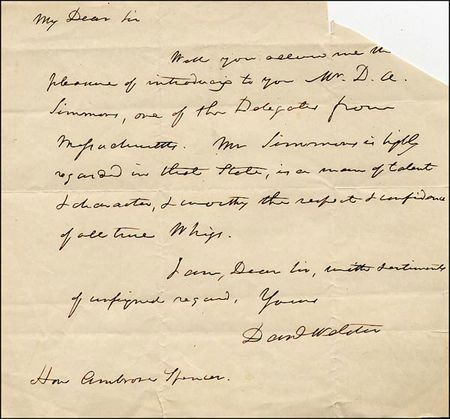 My Dear Sir
Will you allow me the
pleasure of introducing to you Mr. D. A.
Simmons, one of the Delegates from
Massachusetts. Mr Simmons is highly
regarded in that State, is a man of talent
& character, & worthy the respect & confidence
of all true Whigs.
I am, Dear Sir, with sentiments
of unfeigned regard, Yours
Danl Webster
Hon Ambrose Spencer.